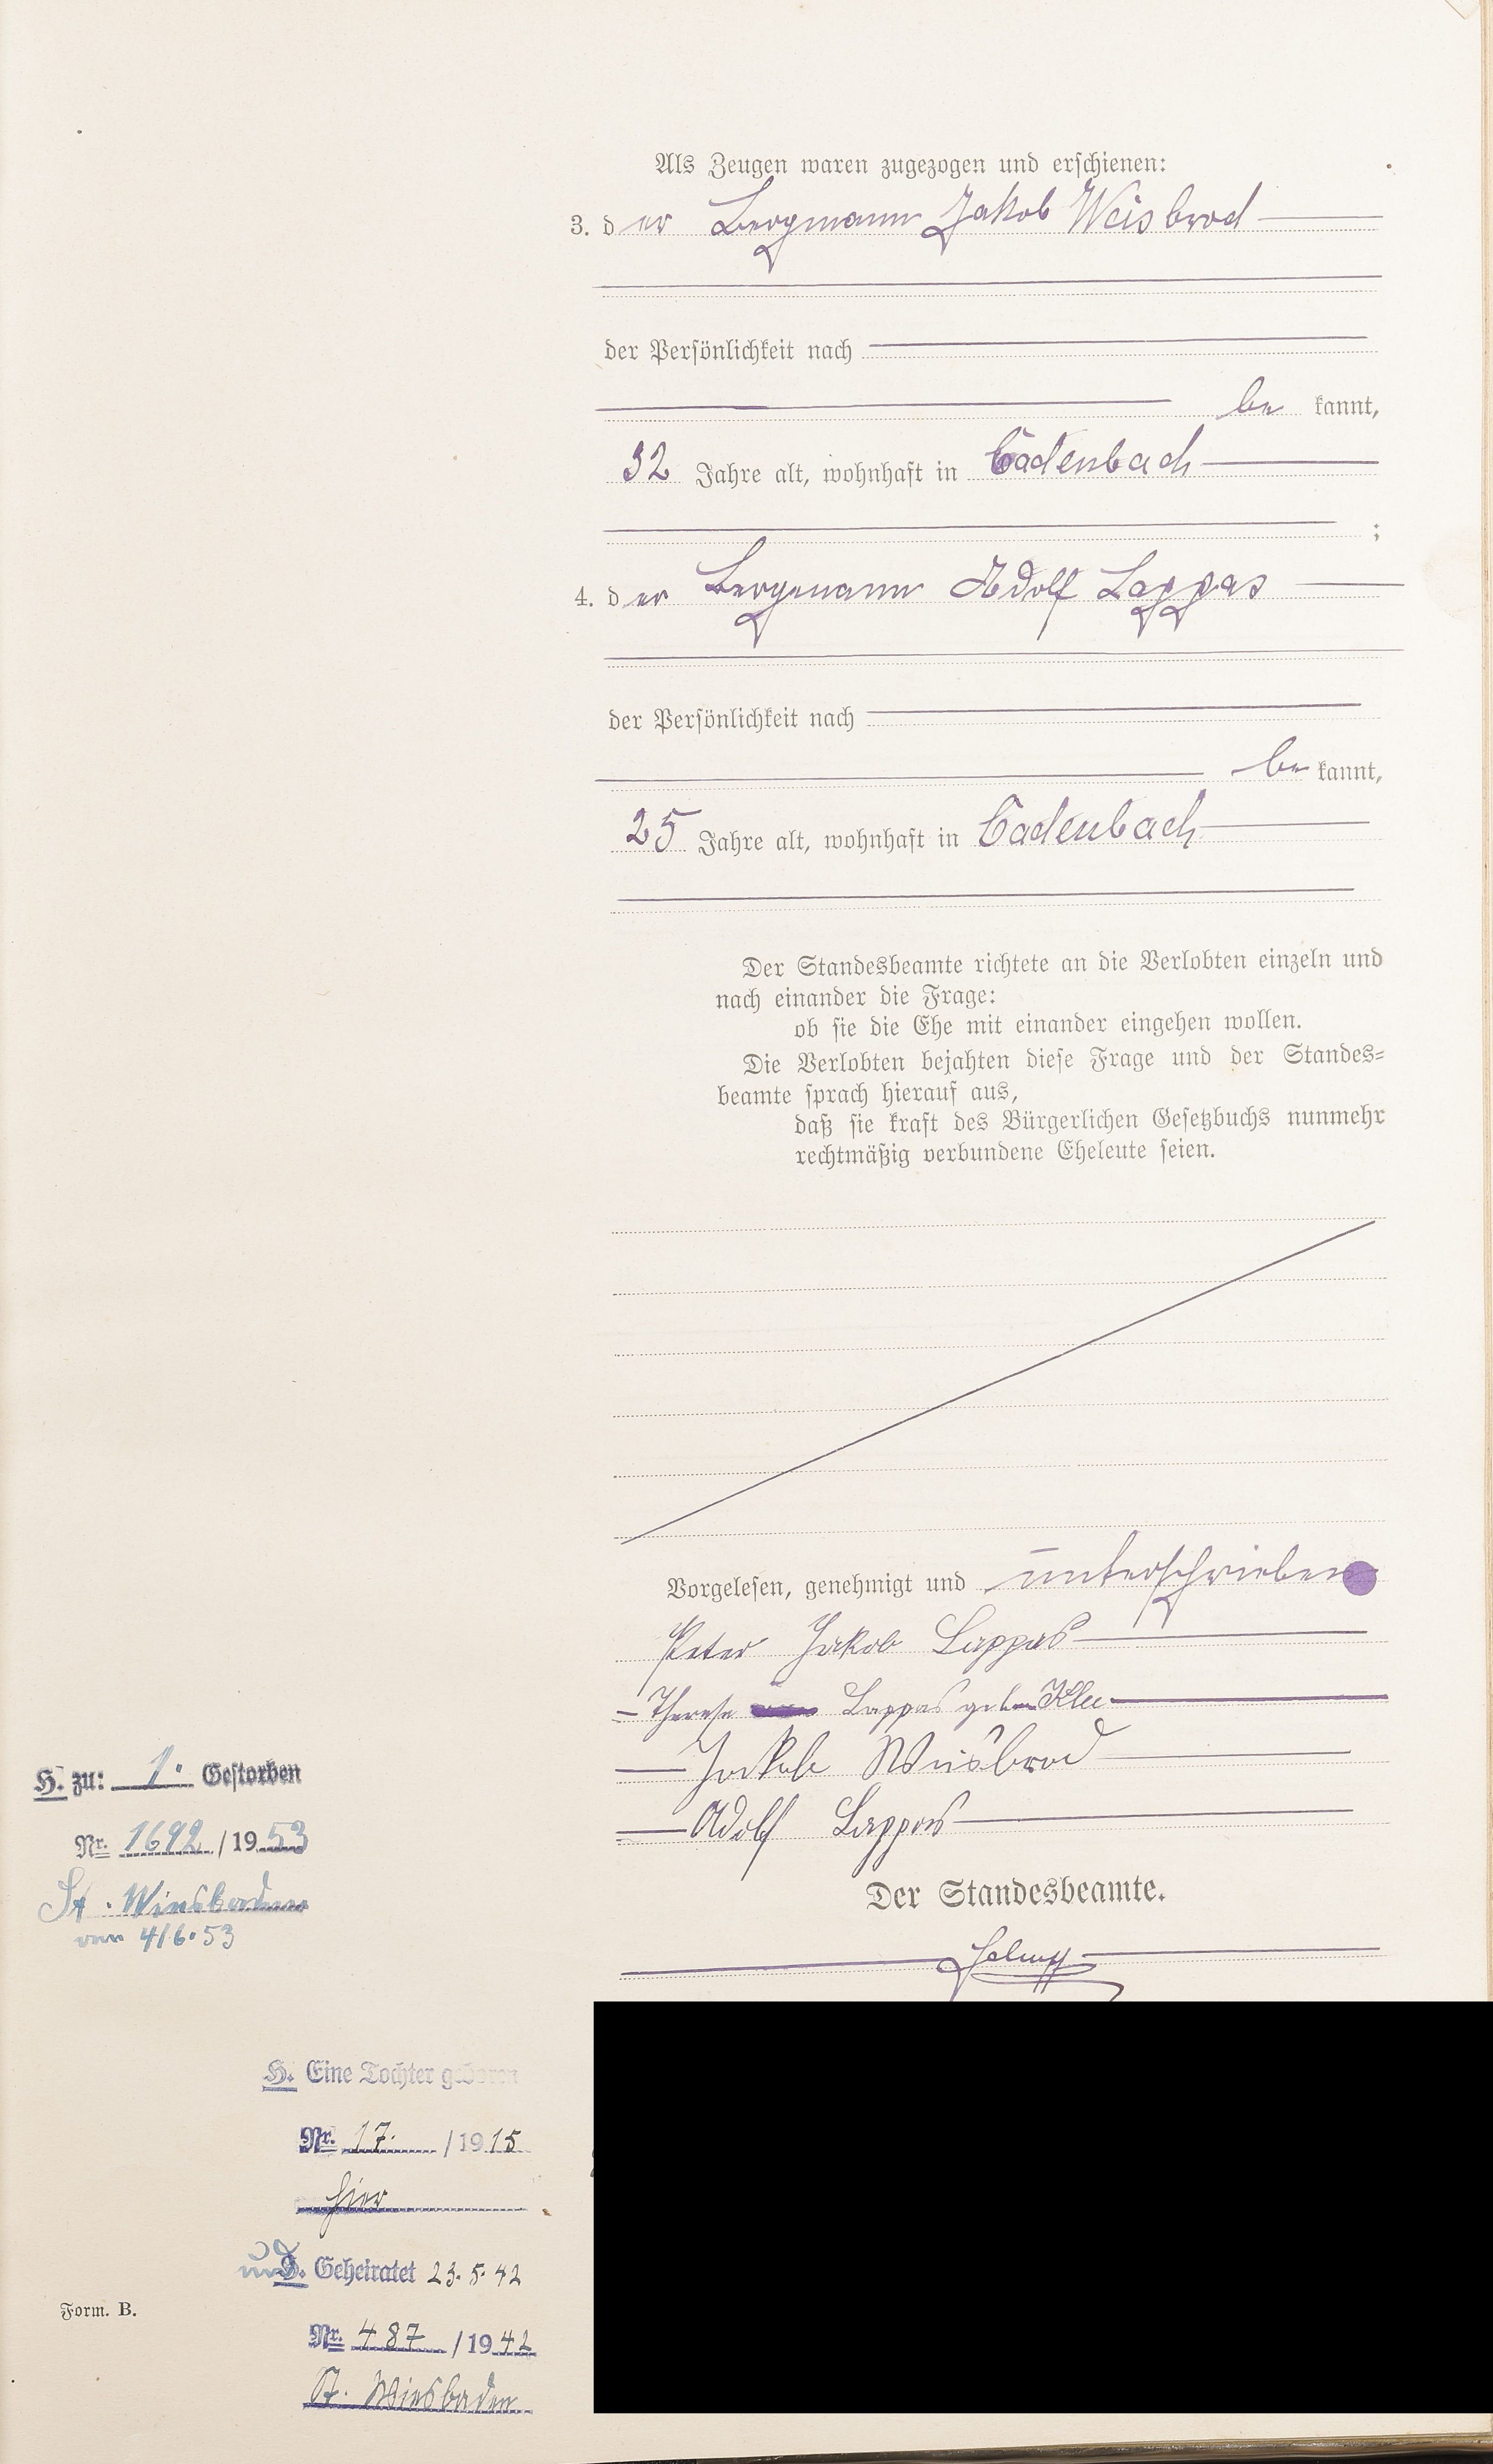 Als Zeugen waren zugezogen und erschienen:
3. der Bergmann Jakob Weisbrod
der Persönlichkeit nach
be kannt,
32 Jahre alt, wohnhaft in Cadenbach
;
4. der Bergmann Adolf Lappas
der Persönlichkeit nach
be kannt,
25 Jahre alt, wohnhaft in Cadenbach
Der Standesbeamte richtete an die Verlobten einzeln und
nach einander die Frage:
ob sie die Ehe mit einander eingehen wollen.
Die Verlobten bejahten diese Frage und der Standes=
beamte sprach hierauf aus,
daß sie kraft des Bürgerlichen Gesetzbuchs nunmehr
rechtmäßig verbundene Eheleute seien.
Vorgelesen, genehmigt und unterschrieben
Peter Jakob Lappas
Therese Lappas geb. Klee
Jakob Weisbrod
Adolf Lappas
Der Standesbeamte.
H. zu: 1. Gestorben
Nr. 1692 / 1953
St. Wiesbaden
vom 4/6.53
H. Eine Tochter geboren
Nr. 17. / 1915
hier
und Geheiratet 23.5.42
Nr. 487 / 1942
St. Wiesbaden
Form. B.